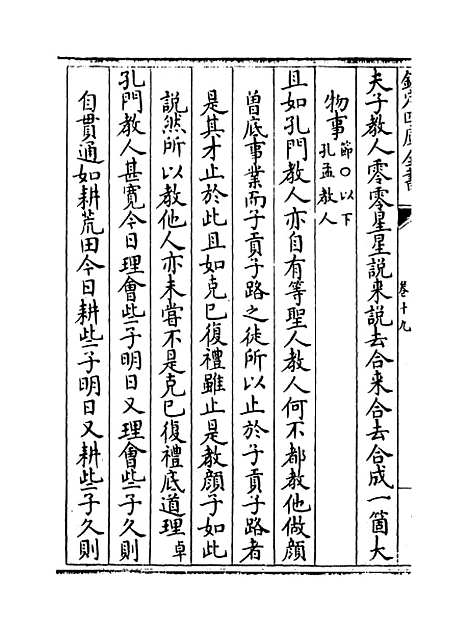 欽定四庫全書
卷十九
夫子教人零零星星說来說去合来合去合成一箇大
物事節○以下孔孟教人
且如孔門教人亦自有等聖人教人何不都教他做顔
曽底事業而子貢子路之徒所以止於子貢子路者
是其才止於此且如克已復禮雖止是教顔子如此
說然所以教他人亦未嘗不是克已復禮底道理卓
孔門教人甚寛今日理會些子明日又理會些子久則
自貫通如耕荒田今日耕些子明日又耕些子久則